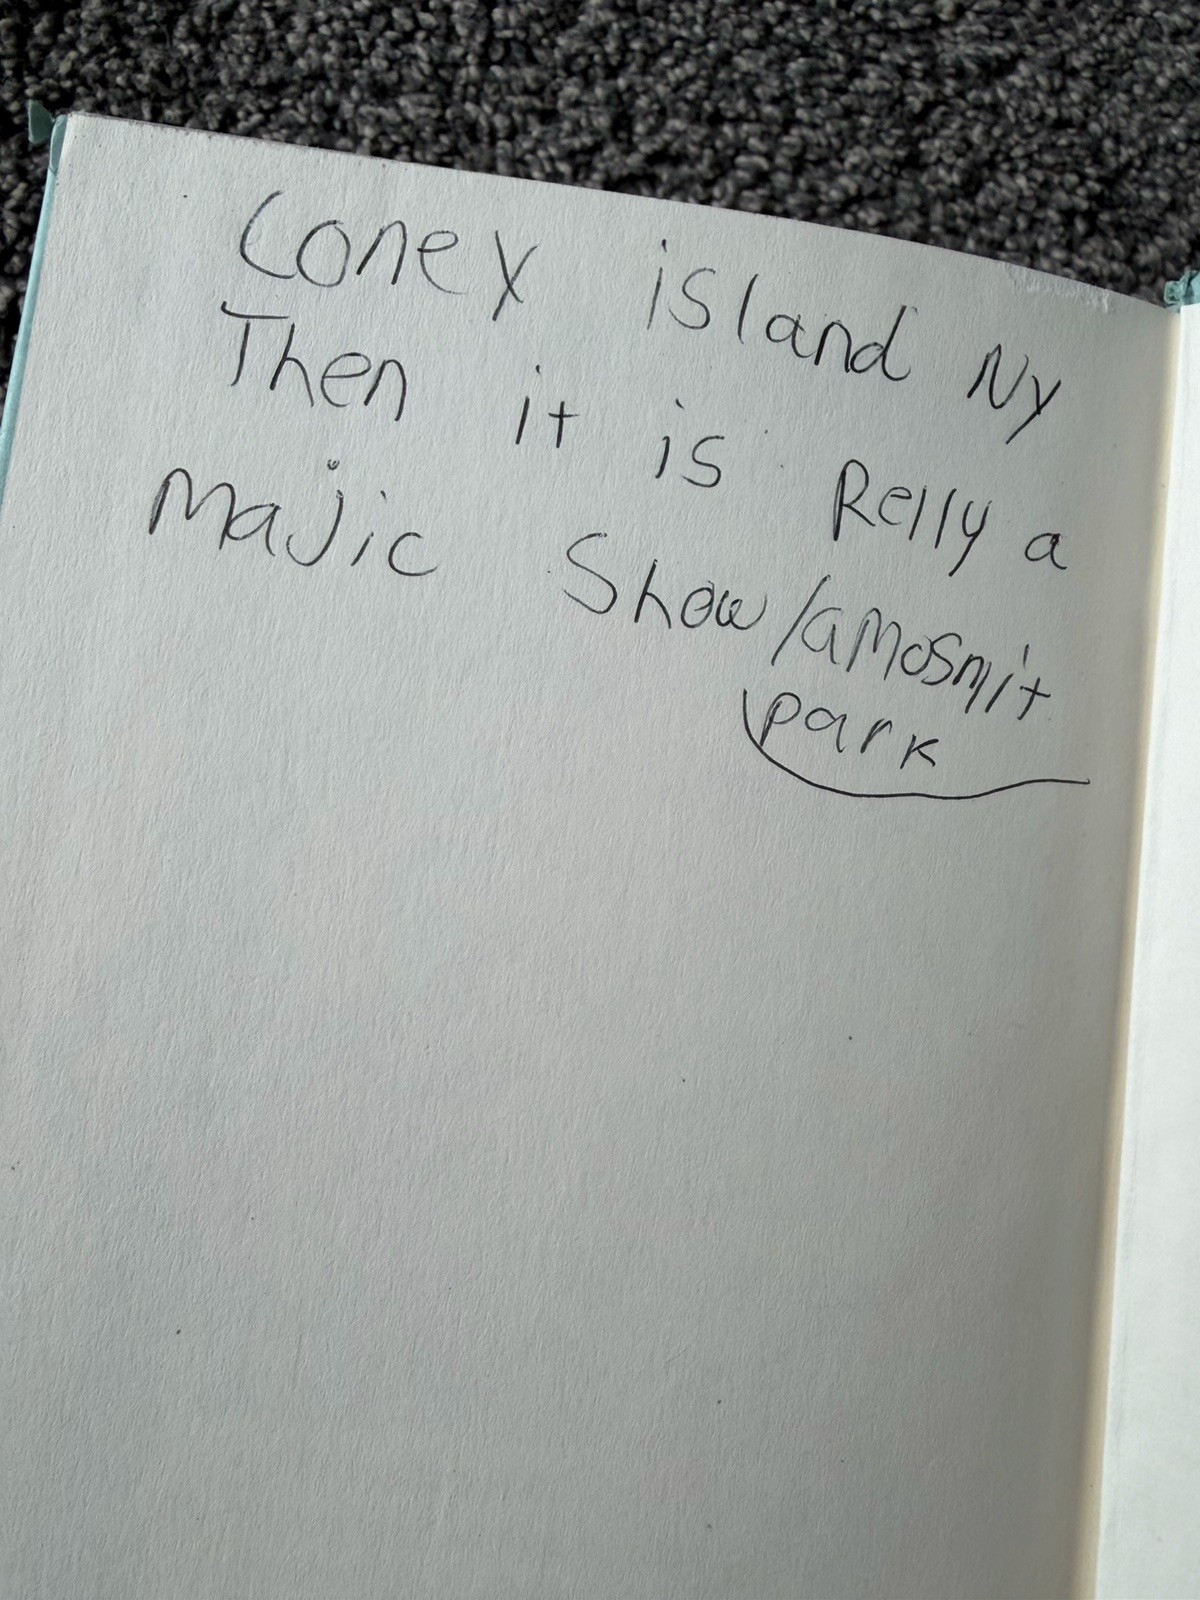 Coney island NY
Then it is Relly a
majic Show/amosmit
park